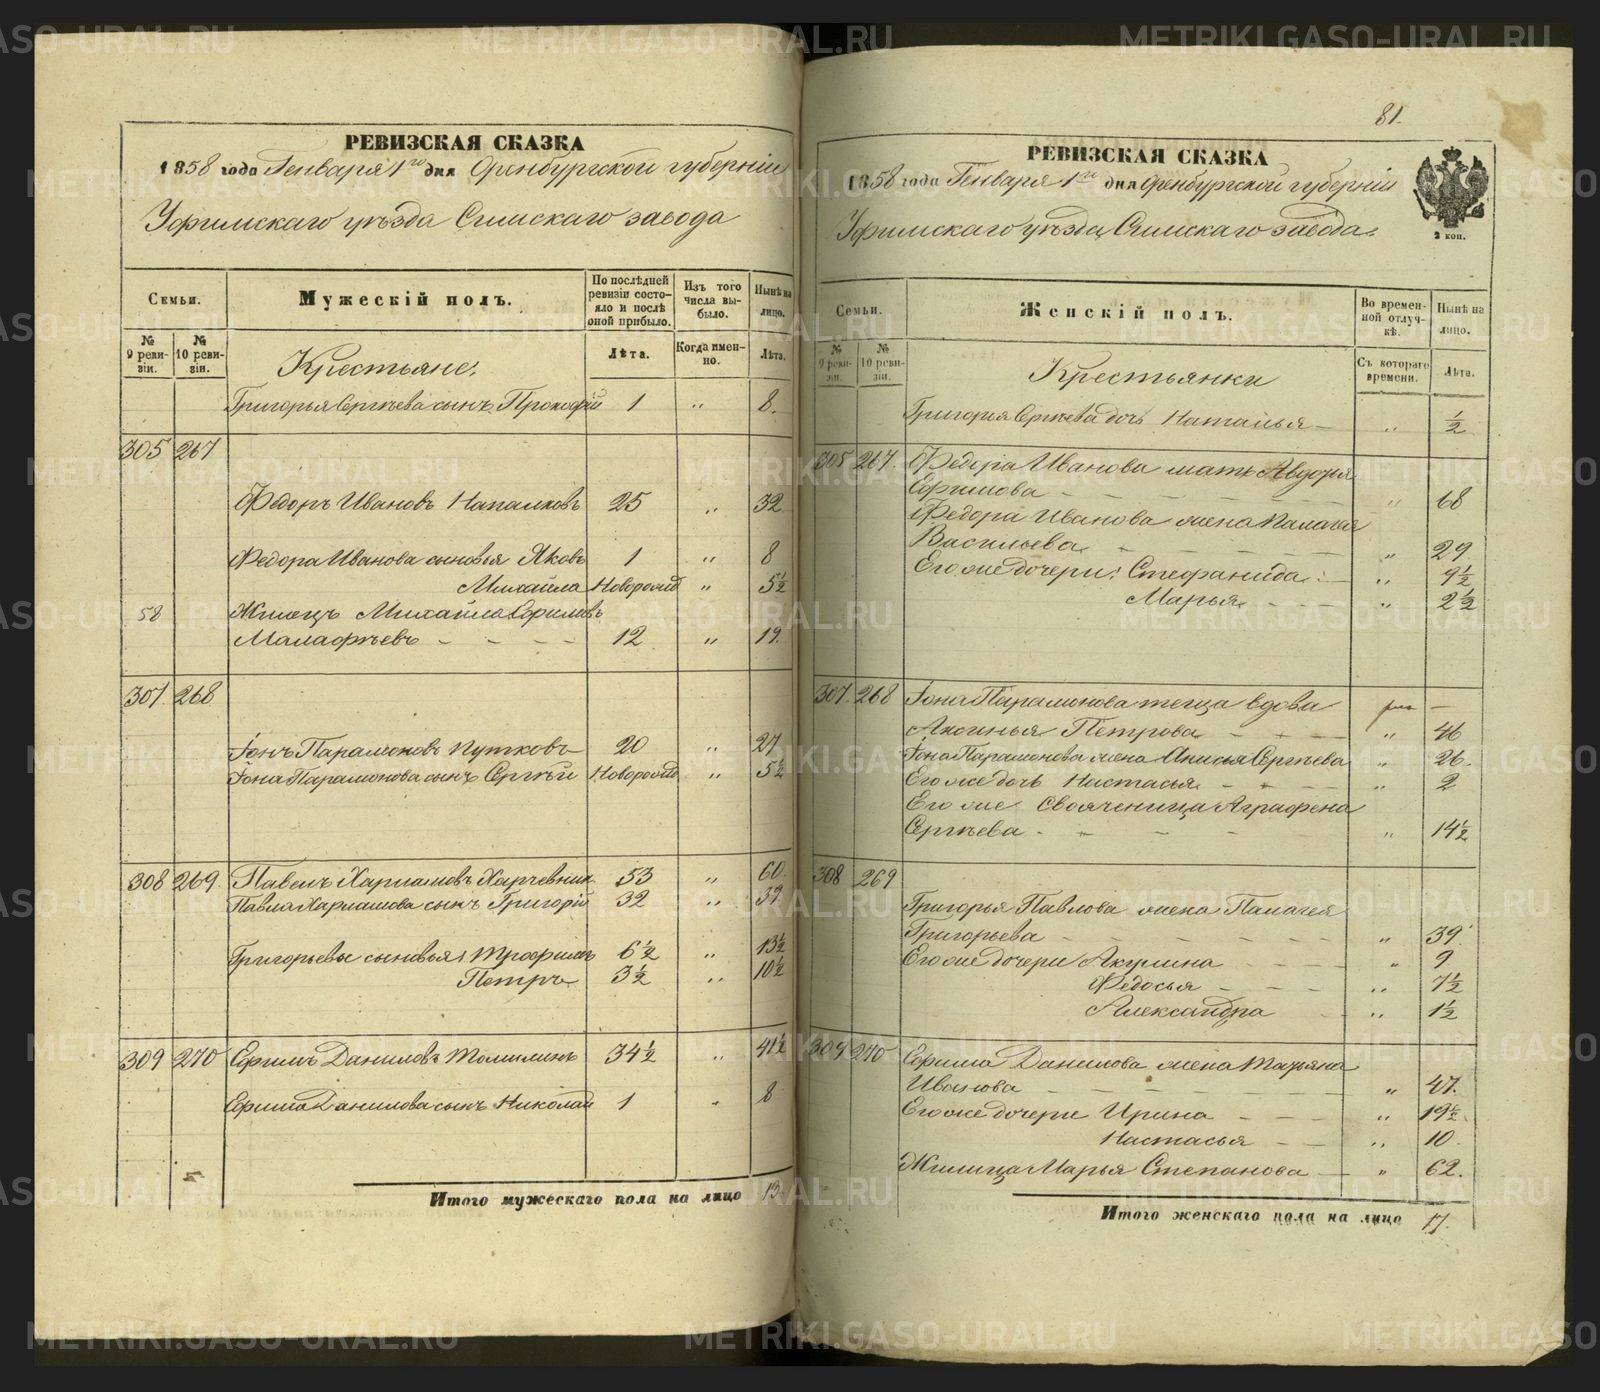 РЕВИЗСКАЯ СКАЗКА
1858 года Генваря 1го дня Оренбургской губерніи
Уфимскаго уѣзда Симскаго завода
Семьи.
Мужескій полъ.
По послѣдней ревизіи состояло и послѣ оной прибыло.
Изъ того числа выбыло.
Нынѣ на лицо.
№ 9 ревизіи.
№ 10 ревизіи.
Крестьяне:
Лѣта.
Когда именно.
Лѣта.
Григорья Сергѣева сынъ Прокофій 1 " 8.
305 267
Федоръ Ивановъ Напалковъ 25 " 32
Федора Иванова сыновья Яковъ 1 " 8
Михайла Новорожд " 5½
58 Жилецъ Михайла Ефимовъ
Малафѣевъ - - - - 12 " 19.
307 268
Іонъ Парамоновъ Путковъ 20 " 27
Іона Парамонова сынъ Сергѣй Новорожд " 5½
308 269 Павелъ Харламовъ Харчевник 53 " 60
Павла Харламова сынъ Григорій 32 " 39
Григорьевы сыновья Трофимъ 6½ " 13½
Петръ 3½ " 10½
309 270 Ефимъ Даниловъ Томилинъ 34½ " 41½
Ефима Данилова сынъ Николай 1 " 8
Итого мужескаго пола на лицо 13.
81.
РЕВИЗСКАЯ СКАЗКА
1858 года Генваря 1го дня Оренбургской губерніи
Уфимскаго уѣзда Симскаго завода.
2 коп.
Семьи.
Женскій полъ.
Во временной отлучкѣ.
Нынѣ на лицо.
№ 9 ревизіи.
№ 10 ревизіи.
Крестьянки
Съ котораго времени.
Лѣта.
Григорья Сергѣева дочь Наталья " ½
305 267. Федора Иванова мать Авдотья
Ефимова - - - - " 68
Федора Иванова жена Палагея
Васильева - - - - " 29
Его же дочери: Стефанида " 9½
Марья - - - " 2½
307. 268 Іона Парамонова теща вдова
Аксинья Петрова - - - " 46
Іона Парамонова жена Анисья Сергѣева " 26.
Его же дочь Настасья - - - " 2
Его же свояченица Аграфена
Сергѣева - - - - " 14½
308 269
Григорья Павлова жена Палагея
Григорьева - - - - " 39.
Его же дочери Акулина - - - " 9
Федосья - - - " 7½
Александра - - " 1½
309 270 Ефима Данилова жена Татьяна
Иванова - - - - " 47.
Его же дочери Ирина - - - " 19½
Настасья - - " 10.
Жилица Марья Степанова - " 62.
Итого женскаго пола на лицо 17.
METRIKI.GASO-URAL.RU